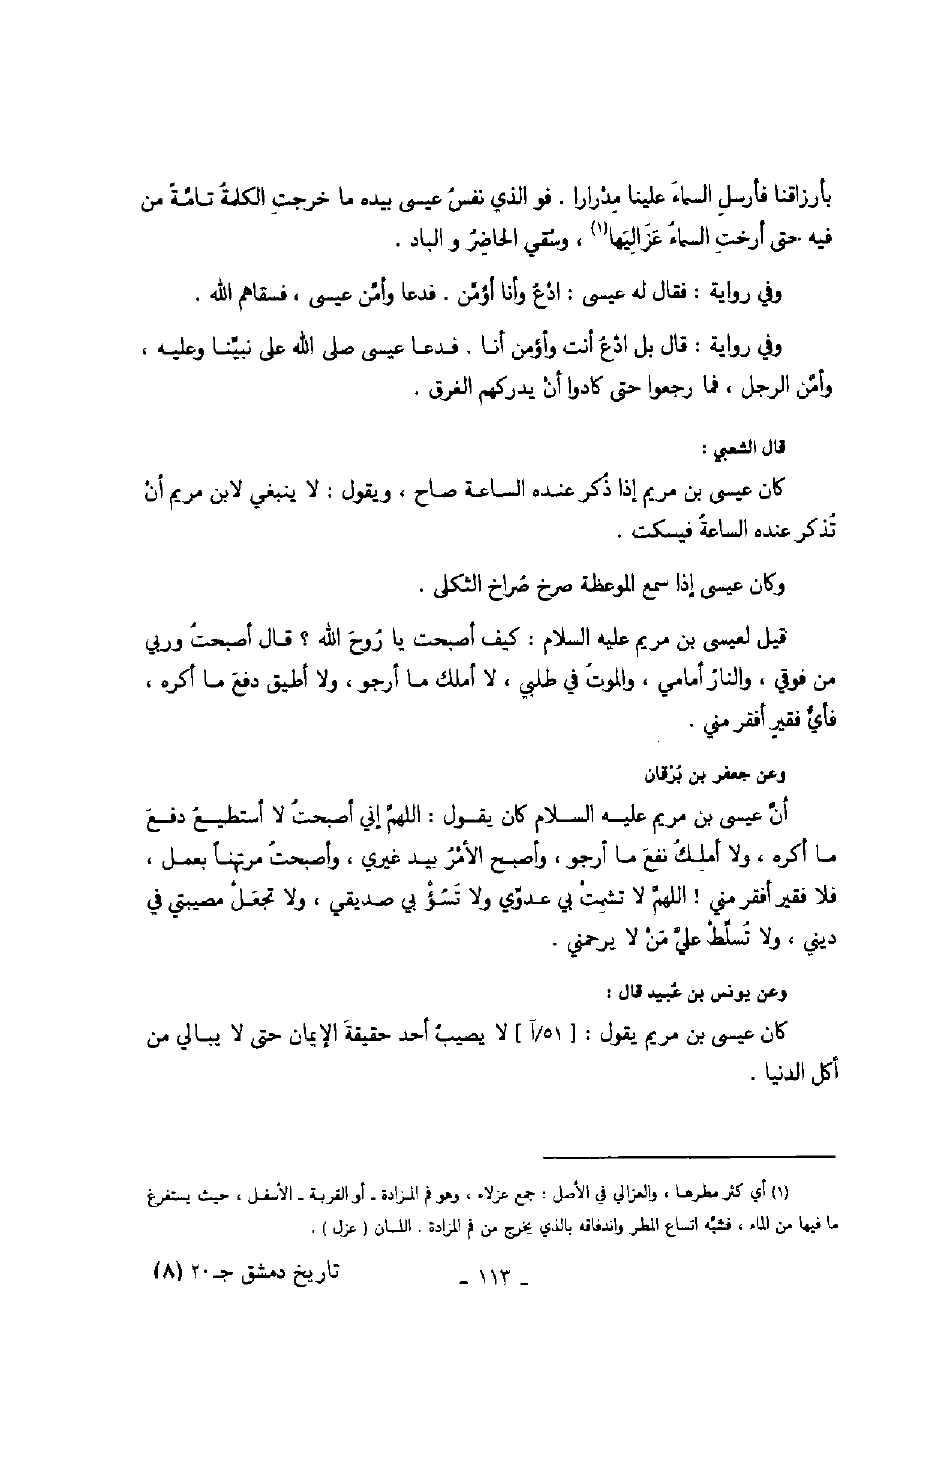 بأرزاقنا فأرسلِ السماءَ علينا مِدْرارا . فو الذي نفسُ عيسى بيده ما خرجتِ الكلمةُ تامّةً من
فيه حتى أرختِ السماءُ عَزَالِيَها(١) ، وسُقي الحاضِرُ و الباد .
وفي رواية : فقال له عيسى : ادْعُ وأنا أؤمّن . فدعا وأمّن عيسى ، فسقاهم الله .
وفي رواية : قال بل ادْعُ أنت وأؤمن أنا . فدعا عيسى صلى الله على نبيّنا وعليه ،
وأمّن الرجل ، فما رجعوا حتى كادوا أنْ يدركهم الغرق .
قال الشعبي :
كان عيسى بن مريم إذا ذُكر عنده الساعة صاح ، ويقول : لا ينبغي لابن مريم أنْ
تُذكر عنده الساعةُ فيسكت .
وكان عيسى إذا سمع الموعظة صرخ صُراخ الثكلى .
قيل لعيسى بن مريم عليه السلام : كيف أصبحت يا رُوحَ الله ؟ قال أصبحتُ وربي
من فوقي ، والنارُ أمامي ، والموتُ في طلبي ، لا أملك ما أرجو ، ولا أطيق دفعَ ما أكره ،
فأيُّ فقيرٍ أفقر مني .
وعن جعفر بن بُرْقان
أنّ عيسى بن مريم عليه السلام كان يقول : اللهمَّ إني أصبحتُ لا أستطيعُ دفعَ
ما أكره ، ولا أملِكُ نفعَ ما أرجو ، وأصبح الأمْرُ بيد غيري ، وأصبحتُ مرتهناً بعمل ،
فلا فقير أفقر مني ! اللهمَّ لا تشمِتْ بي عدوّي ولا تَسُؤْ بي صديقي ، ولا تجعَلْ مصيبتي في
ديني ، ولا تُسلّطْ عليَّ مَنْ لا يرحمني .
وعن يونس بن عُبيد قال :
كان عيسى بن مريم يقول : [ ٥١/آ ] لا يصيبُ أحد حقيقةَ الإيمان حتى لا يبالي من
أكل الدنيا .
(١) أي كثر مطرها ، والعزالي في الأصل : جمع عزلاء ، وهو فم المزادة ـ أو القربة ـ الأسفل ، حيث يستفرغ
ما فيها من الماء ، فشبّه اتساع المطر واندفاقه بالذي يخرج من فم المزادة . اللسان ( عزل ) .
ـ ١١٣ ـ تاريخ دمشق جـ٢٠ (٨)